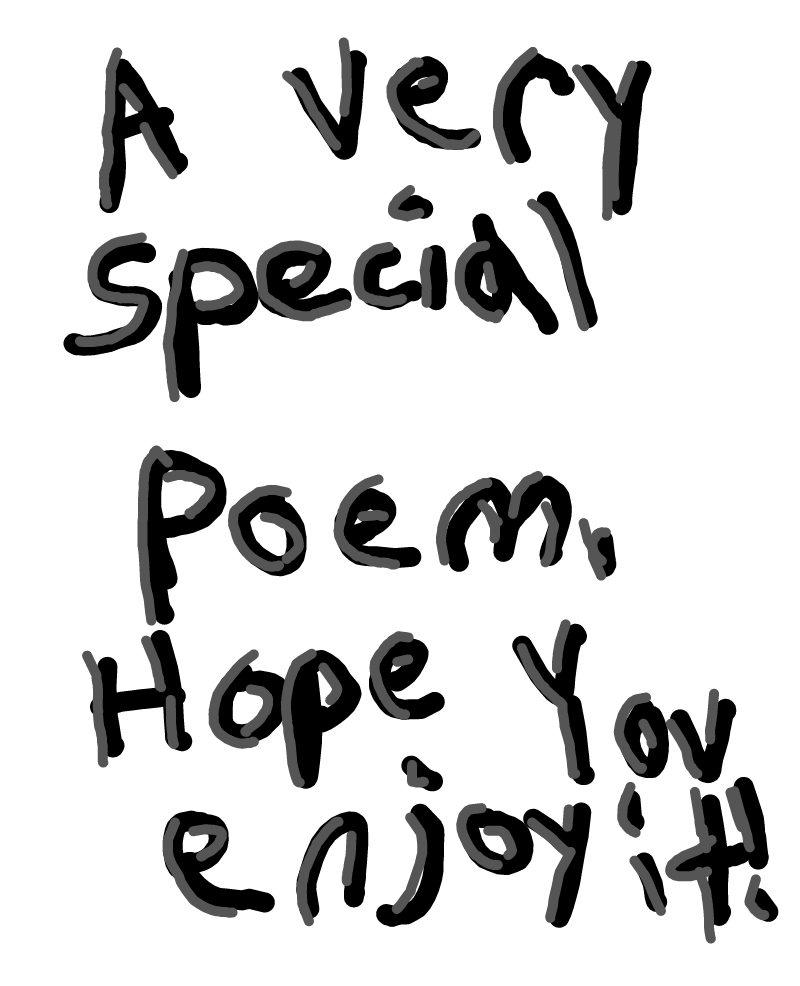 A very
special
Poem,
Hope You
enjoy it!